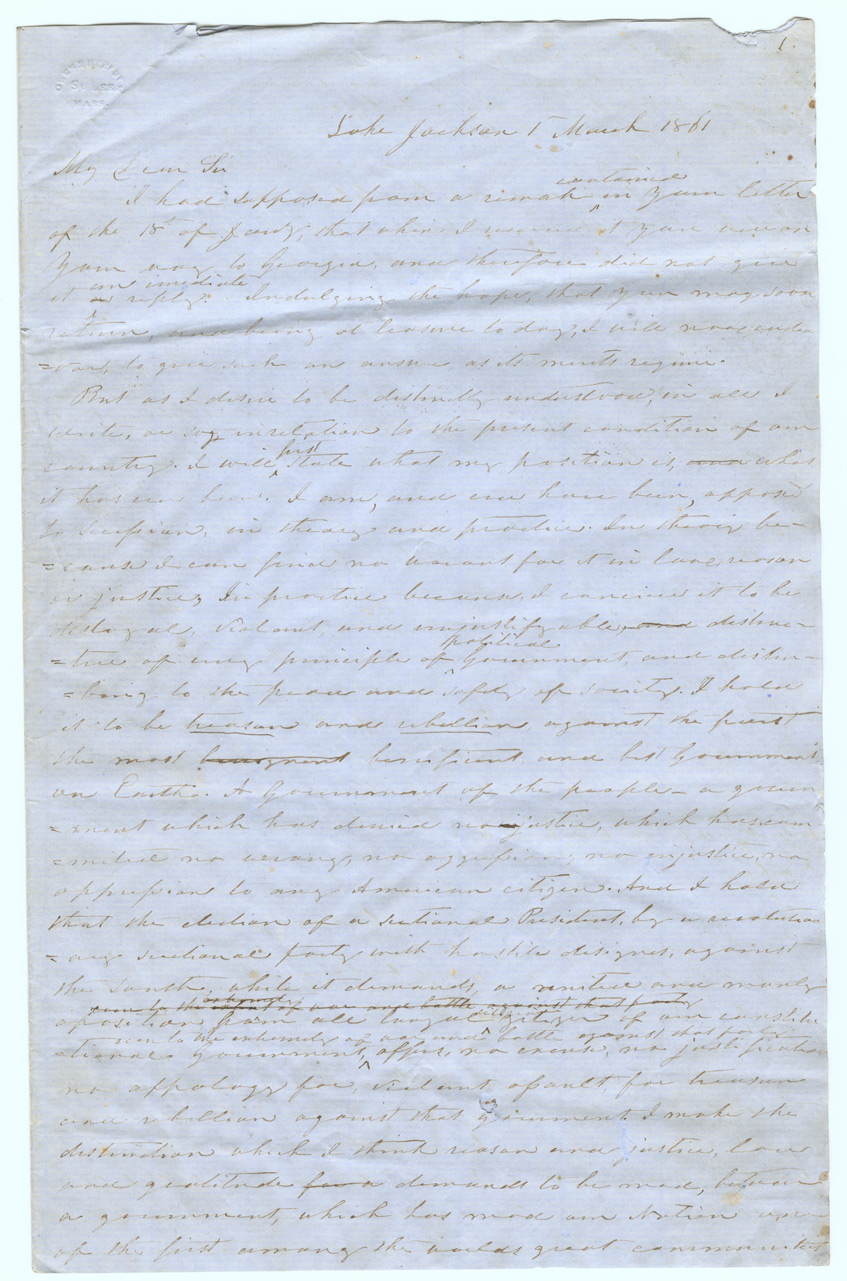 1.
Lake Jackson 1st March 1861
My Dear Sir
I had supposed from a remark contained in your letter
of the 18th of Jany, that when I received it you were on
your way to Georgia, and therefore did not give
it an imediate reply. Indulging the hope, that you may soon
return, and being at leasure to day, I will now endea
=vor, to give such an answer as its merits require.
But as I desire to be distinctly understood, in all I
write, or say in relation to the present condition of our
country. I will first state what my position is, and what
it has ever been. I am, and ever have been, opposed
to secession, in theory and practice. In theory be-
=cause I can find no warant for it in law, reason
or justice, In practice because, I concieve it to be
disloyal, violent, and unjustifyable, and distruc-
=tive of every principle of political Government, and distur-
=bing to the peace and safety of society. I hold
it to be treason and rebellion against the purest
the most benignant benificient, and best Government
on Earth. A Government of the people - a govern
=ment which has denied no justice, which has com
=mitted no wrong, no aggression, no injustice, no
oppression to any American citizen. And I hold
that the election of a sectional President, by a revolution
=ary sectional party with hostile designes, against
the South, while it demands, a united and manly
even to the extremity extent of war and battle against that party
oposition from all loyal citizens of our constitu
even to the extremity of war and battle against that party
ational government, offers, no excuse, no justification
no appology for, violent assault, for treason
and rebellion against that government. I make the
distinction which I think reason and justice, law
and gratitude for a demands to be made, between
a government, which has made our Nation one
of the first among the worlds great communities